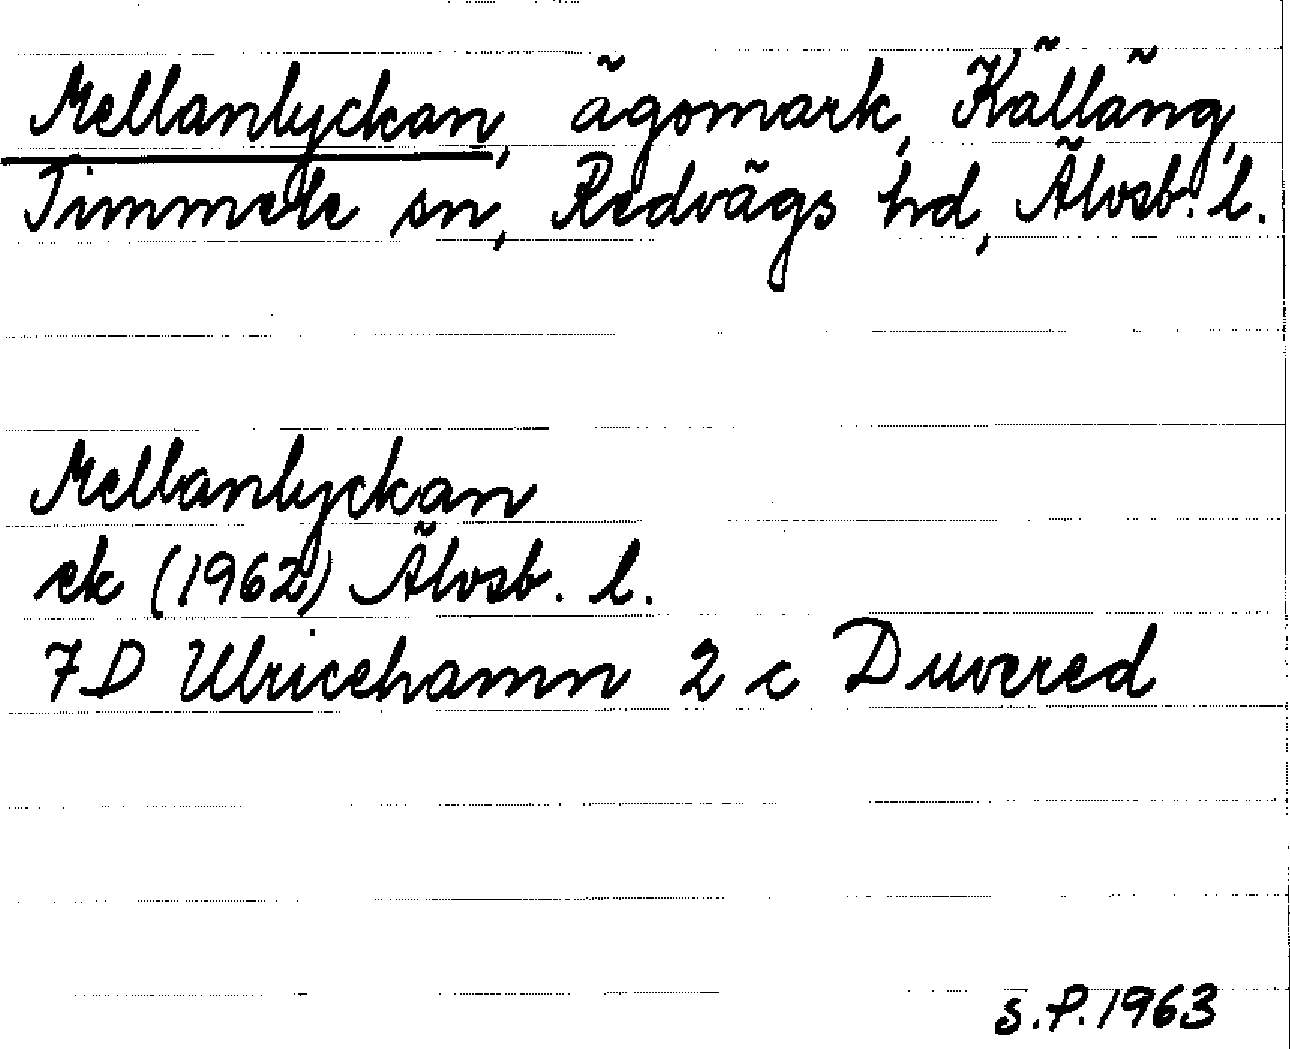 Mellanlyckan, ägomark, Källäng,
Timmele sn, Redvägs hd, Älvsb. l.
Mellanlyckan
ek (1962) Älvsb. l.
7D Ulricehamn 2 c Duvered
S.P. 1963